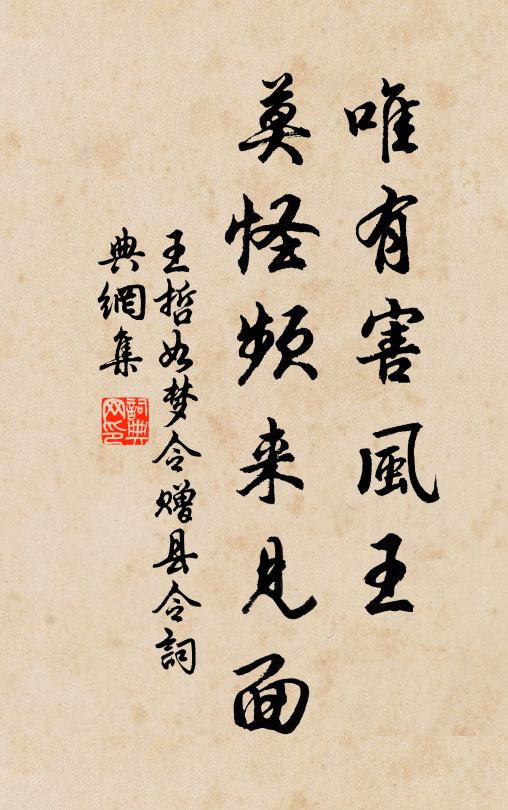 唯有害風王
莫怪頻来見面
王哲如梦令赠县令詞
典網集
詞典网印